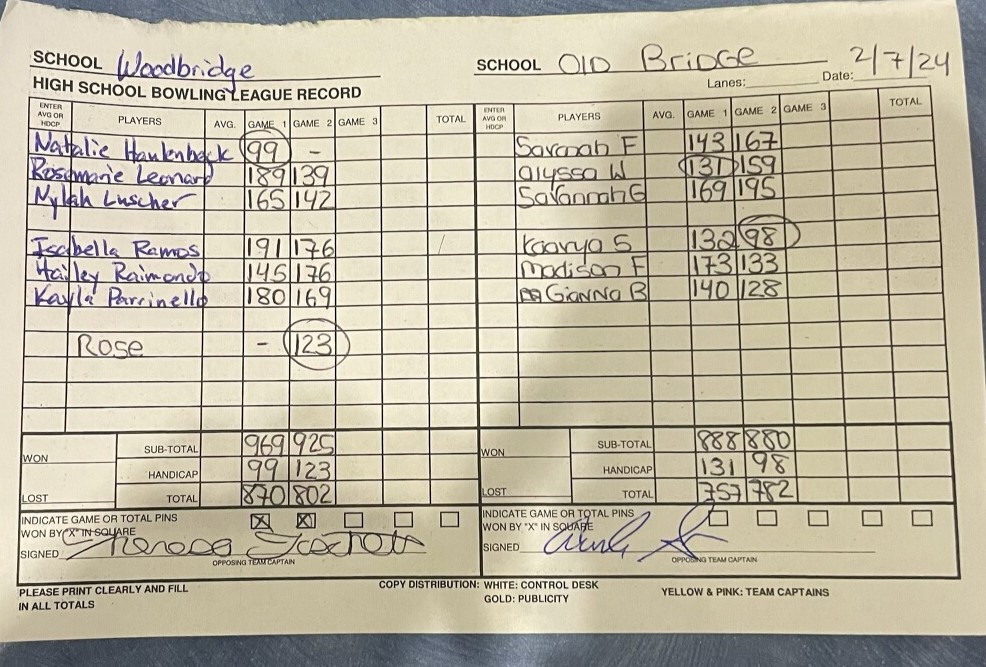 SCHOOL Woodbridge SCHOOL OlD BRiDGE 2/7/24
HIGH SCHOOL BOWLING LEAGUE RECORD Lanes: Date:
ENTER AVG OR HDCP PLAYERS AVG. GAME 1 GAME 2 GAME 3 TOTAL ENTER AVG OR HDCP PLAYERS AVG. GAME 1 GAME 2 GAME 3 TOTAL
Natalie Haukenbeck 99 - Savanah F 143 167
Rosemarie Leonard 189 139 alyssa W 131 159
Nylah Luscher 165 142 Savannah G 169 195
Isabella Ramos 191 176 Kaavya S 132 98
Hailey Raimondo 145 176 Madison F 173 133
Kayla Parrinello 180 169 Gianna B 140 128
Rose - 123
WON SUB-TOTAL 969 925 WON SUB-TOTAL 888 880
HANDICAP 99 123 HANDICAP 131 98
LOST TOTAL 870 802 LOST TOTAL 757 782
INDICATE GAME OR TOTAL PINS X X INDICATE GAME OR TOTAL PINS
WON BY "X" IN SQUARE WON BY "X" IN SQUARE
SIGNED SIGNED
OPPOSING TEAM CAPTAIN OPPOSING TEAM CAPTAIN
PLEASE PRINT CLEARLY AND FILL COPY DISTRIBUTION: WHITE: CONTROL DESK YELLOW & PINK: TEAM CAPTAINS
IN ALL TOTALS GOLD: PUBLICITY